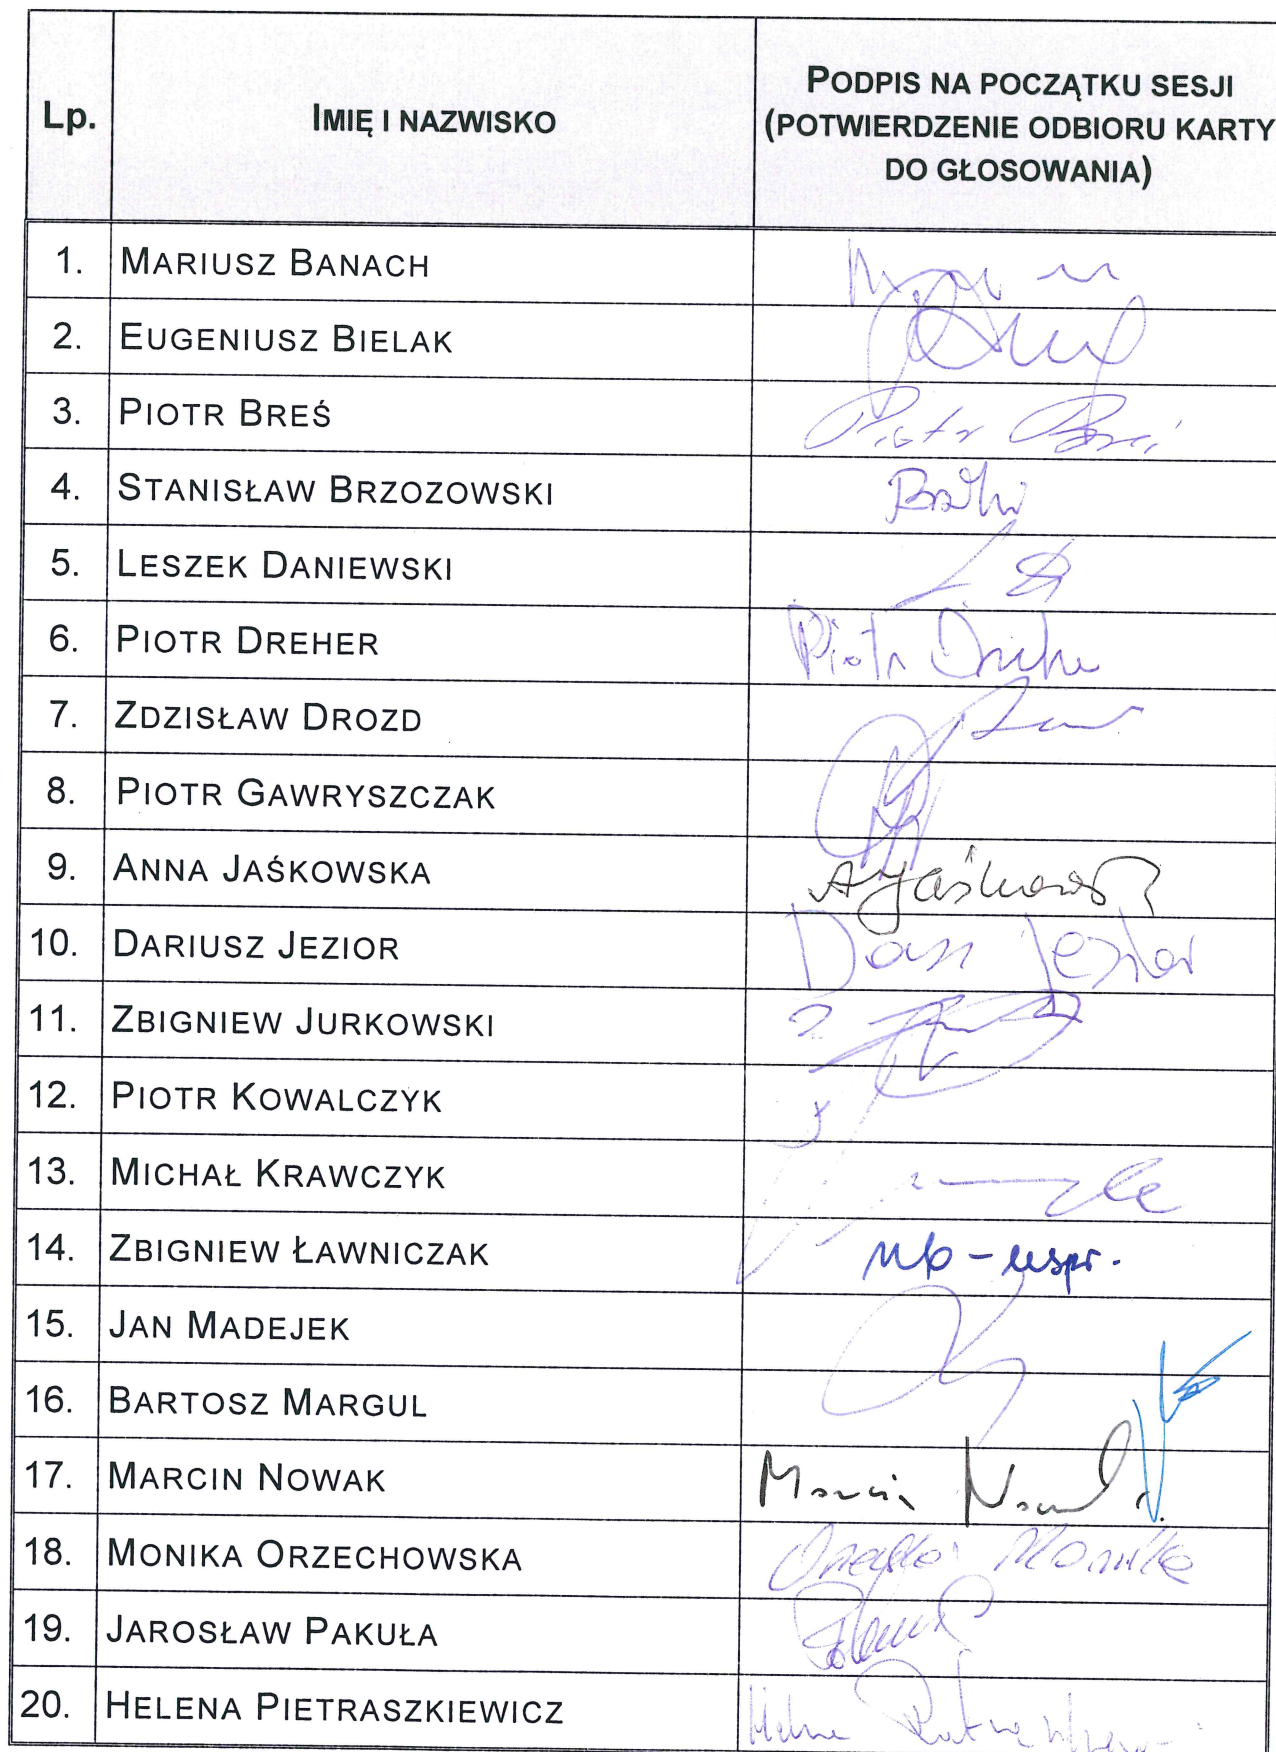 Lp.
IMIĘ I NAZWISKO
PODPIS NA POCZĄTKU SESJI
(POTWIERDZENIE ODBIORU KARTY
DO GŁOSOWANIA)
1. MARIUSZ BANACH
2. EUGENIUSZ BIELAK
3. PIOTR BREŚ Piotr Breś
4. STANISŁAW BRZOZOWSKI
5. LESZEK DANIEWSKI
6. PIOTR DREHER Piotr Dreher
7. ZDZISŁAW DROZD
8. PIOTR GAWRYSZCZAK
9. ANNA JAŚKOWSKA
10. DARIUSZ JEZIOR
11. ZBIGNIEW JURKOWSKI
12. PIOTR KOWALCZYK
13. MICHAŁ KRAWCZYK
14. ZBIGNIEW ŁAWNICZAK nb-uspr.
15. JAN MADEJEK
16. BARTOSZ MARGUL
17. MARCIN NOWAK Marcin Nowak
18. MONIKA ORZECHOWSKA Monika
19. JAROSŁAW PAKUŁA
20. HELENA PIETRASZKIEWICZ Helena